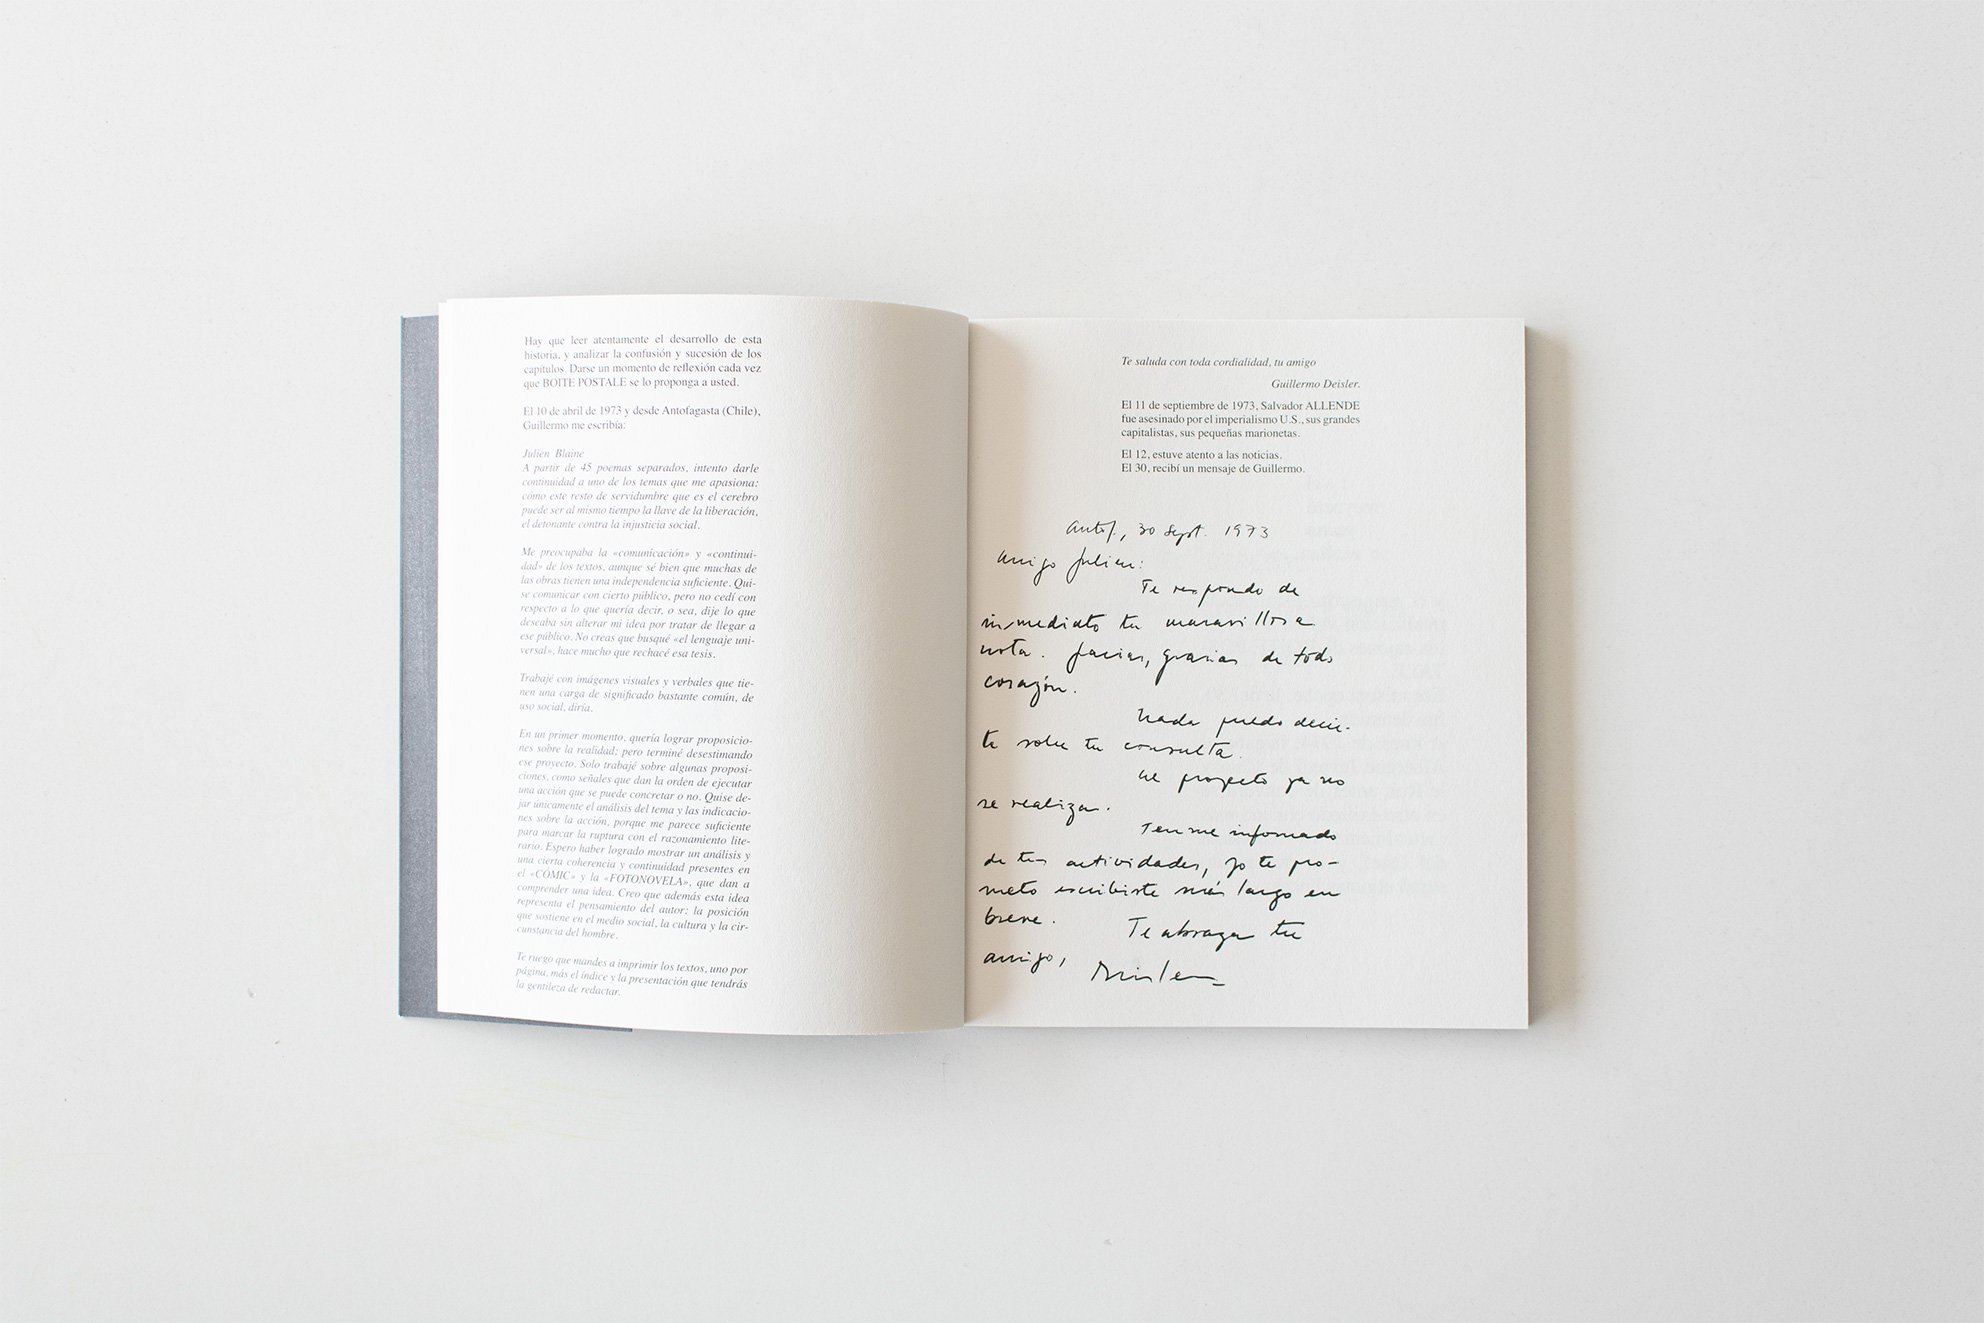 Hay que leer atentamente el desarrollo de esta
historia, y analizar la confusión y sucesión de los
capítulos. Darse un momento de reflexión cada vez
que BOITE POSTALE se lo proponga a usted.
El 10 de abril de 1973 y desde Antofagasta (Chile),
Guillermo me escribía:
Julien Blaine
A partir de 45 poemas separados, intento darle
continuidad a uno de los temas que me apasiona:
cómo este resto de servidumbre que es el cerebro
puede ser al mismo tiempo la llave de la liberación,
el detonante contra la injusticia social.
Me preocupaba la «comunicación» y «continui-
dad» de los textos, aunque sé bien que muchas de
las obras tienen una independencia suficiente. Qui-
se comunicar con cierto público, pero no cedí con
respecto a lo que quería decir, o sea, dije lo que
deseaba sin alterar mi idea por tratar de llegar a
ese público. No creas que busqué «el lenguaje uni-
versal», hace mucho que rechacé esa tesis.
Trabajé con imágenes visuales y verbales que tie-
nen una carga de significado bastante común, de
uso social, diría.
En un primer momento, quería lograr proposicio-
nes sobre la realidad; pero terminé desestimando
ese proyecto. Solo trabajé sobre algunas proposi-
ciones, como señales que dan la orden de ejecutar
una acción que se puede concretar o no. Quise de-
jar únicamente el análisis del tema y las indicacio-
nes sobre la acción, porque me parece suficiente
para marcar la ruptura con el razonamiento lite-
rario. Espero haber logrado mostrar un análisis y
una cierta coherencia y continuidad presentes en
el «CÓMIC» y la «FOTONOVELA», que dan a
comprender una idea. Creo que además esta idea
representa el pensamiento del autor: la posición
que sostiene en el medio social, la cultura y la cir-
cunstancia del hombre.
Te ruego que mandes a imprimir los textos, uno por
página, más el índice y la presentación que tendrás
la gentileza de redactar.
Te saluda con toda cordialidad, tu amigo
Guillermo Deisler.
El 11 de septiembre de 1973, Salvador ALLENDE
fue asesinado por el imperialismo U.S., sus grandes
capitalistas, sus pequeñas marionetas.
El 12, estuve atento a las noticias.
El 30, recibí un mensaje de Guillermo.
Antof., 30 Sept. 1973
Amigo Julien:
Te respondo de
inmediato tu maravillosa
nota. Gracias, gracias de todo
corazón.
Nada puedo decir-
te sobre tu consulta.
El proyecto ya no
se realiza.
Tenme informado
de tus actividades, yo te pro-
meto escribirte más largo en
breve.
Te abraza tu
amigo,
Deisler